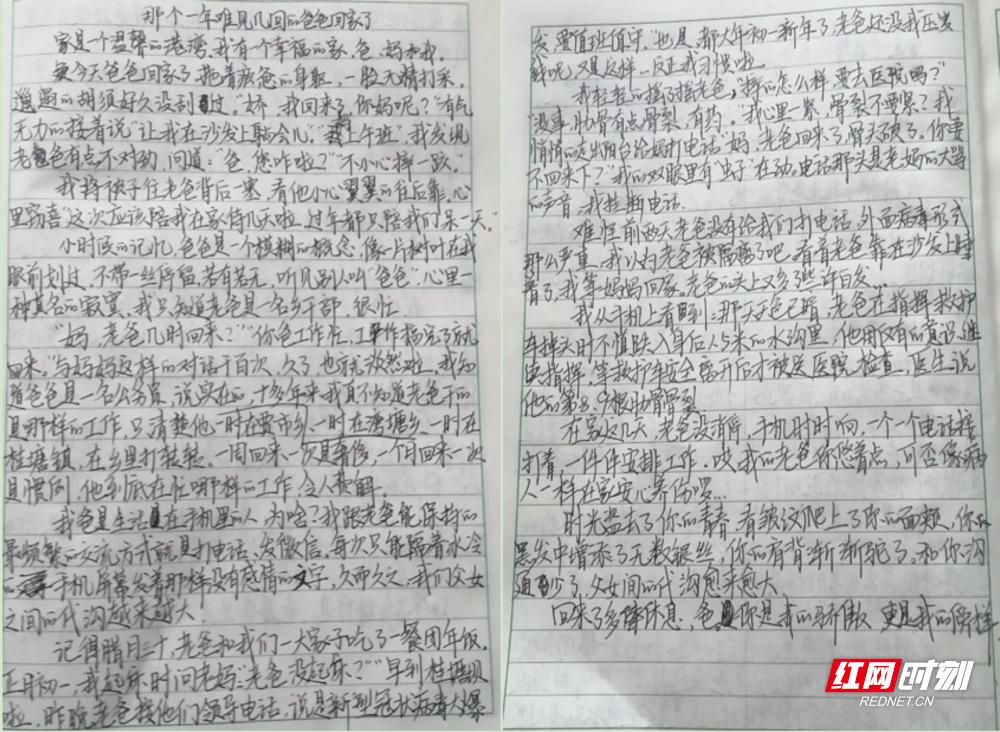 那个一年难见几回的爸爸回家了
家是一个温馨的港湾,我有个幸福的家,爸、妈和我。
今天爸爸回家了,拖着疲惫的身躯,一脸无精打采,
邋遢的胡须好久没刮过。"娇,我回来了,你妈呢?"有气
无力的接着说"让我在沙发上躺会儿""上午班"我发现
老爸有点不对劲,问道:"爸,您咋啦?""不小心摔一跤。"
我将被子往老爸背后一塞,看他小心翼翼的往后靠,心
里窃喜"这次应该陪我在家待几天啦,过年都只陪我们呆一天"。
小时候的记忆,爸爸是一个模糊的概念,像一片树叶在我
眼前划过,不带一丝停留,若有若无,听见别人叫"爸爸",心里一
种莫名的寂寞,我只知道老爸是一名乡干部,很忙。
"妈,老爸几时回来?""你爸工作忙,工作搞完了就
回来。"与妈妈这样的对话千百次,久了,也就释然啦。我知
道爸爸是一名公务员,说实在的,十多年来我真不知道老爸干的
是哪样的工作,只清楚他一时在贾市乡,一时在塘塘乡,一时在
桂塘镇,在乡里打转转。一周回来一次是奢侈,一个月回来一次
是惯例,他到底在忙哪样的工作,令人费解。
我爸是生活在手机里的人,为啥?我跟老爸能保持的
最频繁的交流方式就是打电话、发微信,每次只能隔着冰冷
的手机屏幕发着那样没有感情的文字,久而久之,我们父女
之间的代沟越来越大。
记得腊月三十,老爸和我们一大家子吃了一餐团年饭。
正月初一,我起床时问老妈"老爸没起床?""早到桂塘坝
啦,昨晚老爸接他们领导电话,说是新型冠状病毒大爆
发,要值班值守。"也是,都大年初一新年了,老爸还没我压岁
钱呢,又是这样…反正我习惯啦。
我轻轻的摇了摇老爸,"摔的怎么样,要去医院吗?"
"没事,肋骨有点骨裂,有药。"我心里一紧,骨裂不要紧?我
悄悄的走出阳台给妈打电话"妈,老爸回来了,骨头破了。你要
不回来下?"我的双眼里有"虫子"在动。电话那头是老妈的大嗓
的声音,我挂断电话。
难怪前两天老爸没有给我们打电话,外面病毒形式
那么严重,我以为老爸被隔离了吧。看着老爸靠在沙发上睡
着了,我等妈妈回家。老爸的头上又多了些许白发…
我从手机上看到:那天天色已暗,老爸在指挥救护
车掉头时不慎跌入身后1.5米的水沟里,他用仅有的意识,继
续指挥,等救护车安全离开后才被送医院,检查,医生说
他的第8、9根肋骨骨裂
在家这几天,老爸没消停,手机时时响,一个一个电话接
打着,一件件安排工作。哎,我的老爸你悠着点,可否像病
人一样在家安心养伤啰…
时光盗去了你的青春,看皱纹爬上了你的面颊,你的
黑发中增添了无数银丝,你的肩背渐渐驼了。和你沟
通少了,父女间的代沟愈来愈大。
回来了多休息,爸,你是我的骄傲,更是我的榜样
红网时刻
REDNET.CN